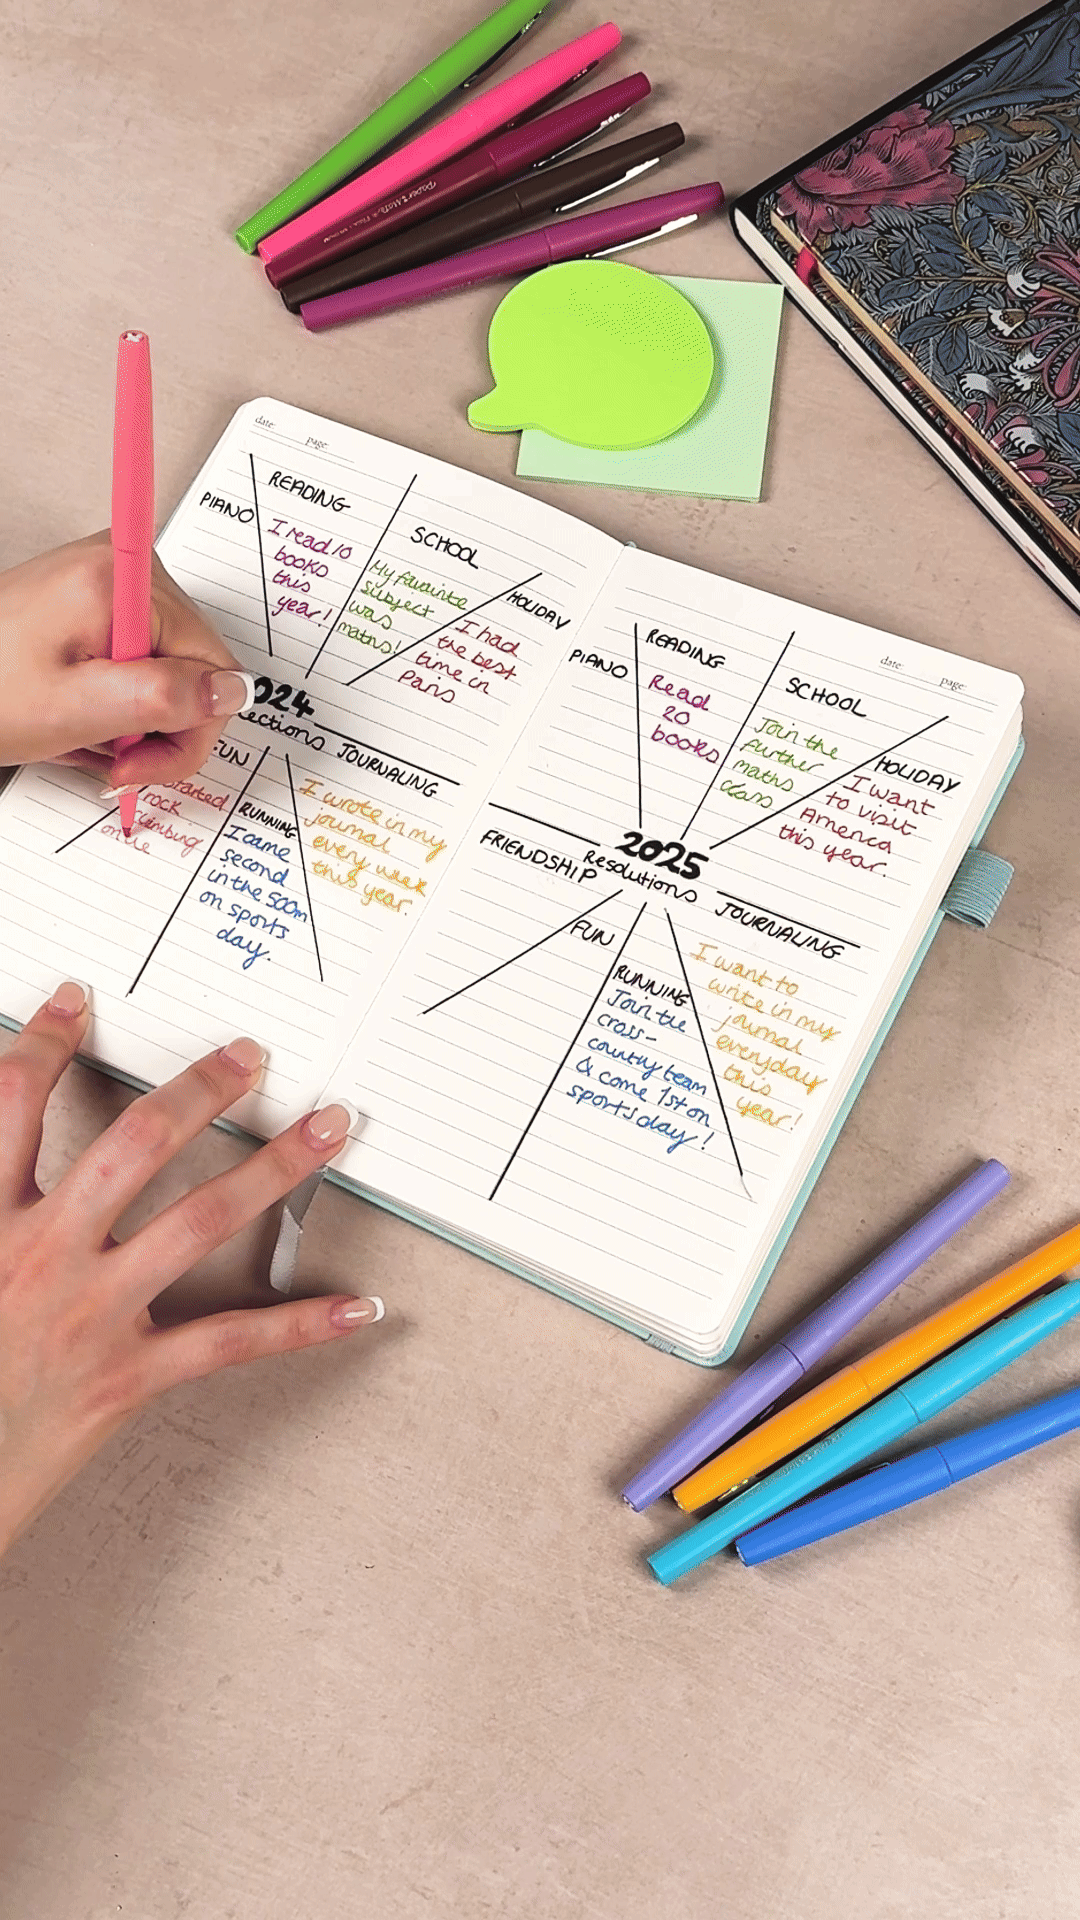 Paper Mate
date:
page:
PIANO
READING
I read 10
books
this
year!
SCHOOL
My favourite
subject
was
maths!
HOLIDAY
I had
the best
time in
Paris
024
ections
FUN
started
rock
climbing
RUNNING
I came
second
in the 500m
on sports
day.
JOURNALING
I wrote in my
journal
every week
this year.
date:
page:
PIANO
READING
Read
20
books
SCHOOL
Join the
further
maths
class
HOLIDAY
I want
to visit
America
this year.
2025
Resolutions
FRIENDSHIP
FUN
RUNNING
Join the
cross-
country team
& come 1st on
sports day!
JOURNALING
I want to
write in my
journal
everyday
this
year!